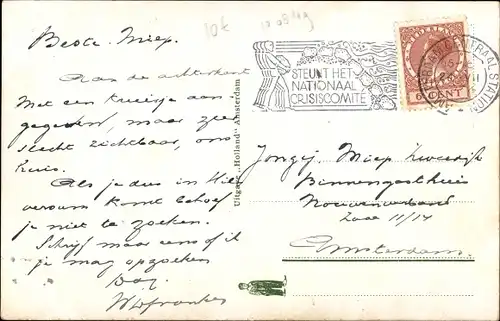 10 f
Beste Miep.
Aan de achterkant
Met een kruisje aan
gegeven, maar zeer
slecht zichtbaar, ons
huis.
Als je dus in Hil
versum komt behoef
je niet te zoeken.
Schrijf maar eens of ik
je mag opzoeken
Dag,
STEUNT HET
NATIONAAL
CRISISCOMITÉ
NEDERLAND
6 CENT
CENTRAAL STATION
Uitgave „Holland" Amsterdam
Jongej. Miep
Binnengasthuis
Zaal 11/14
Amsterdam